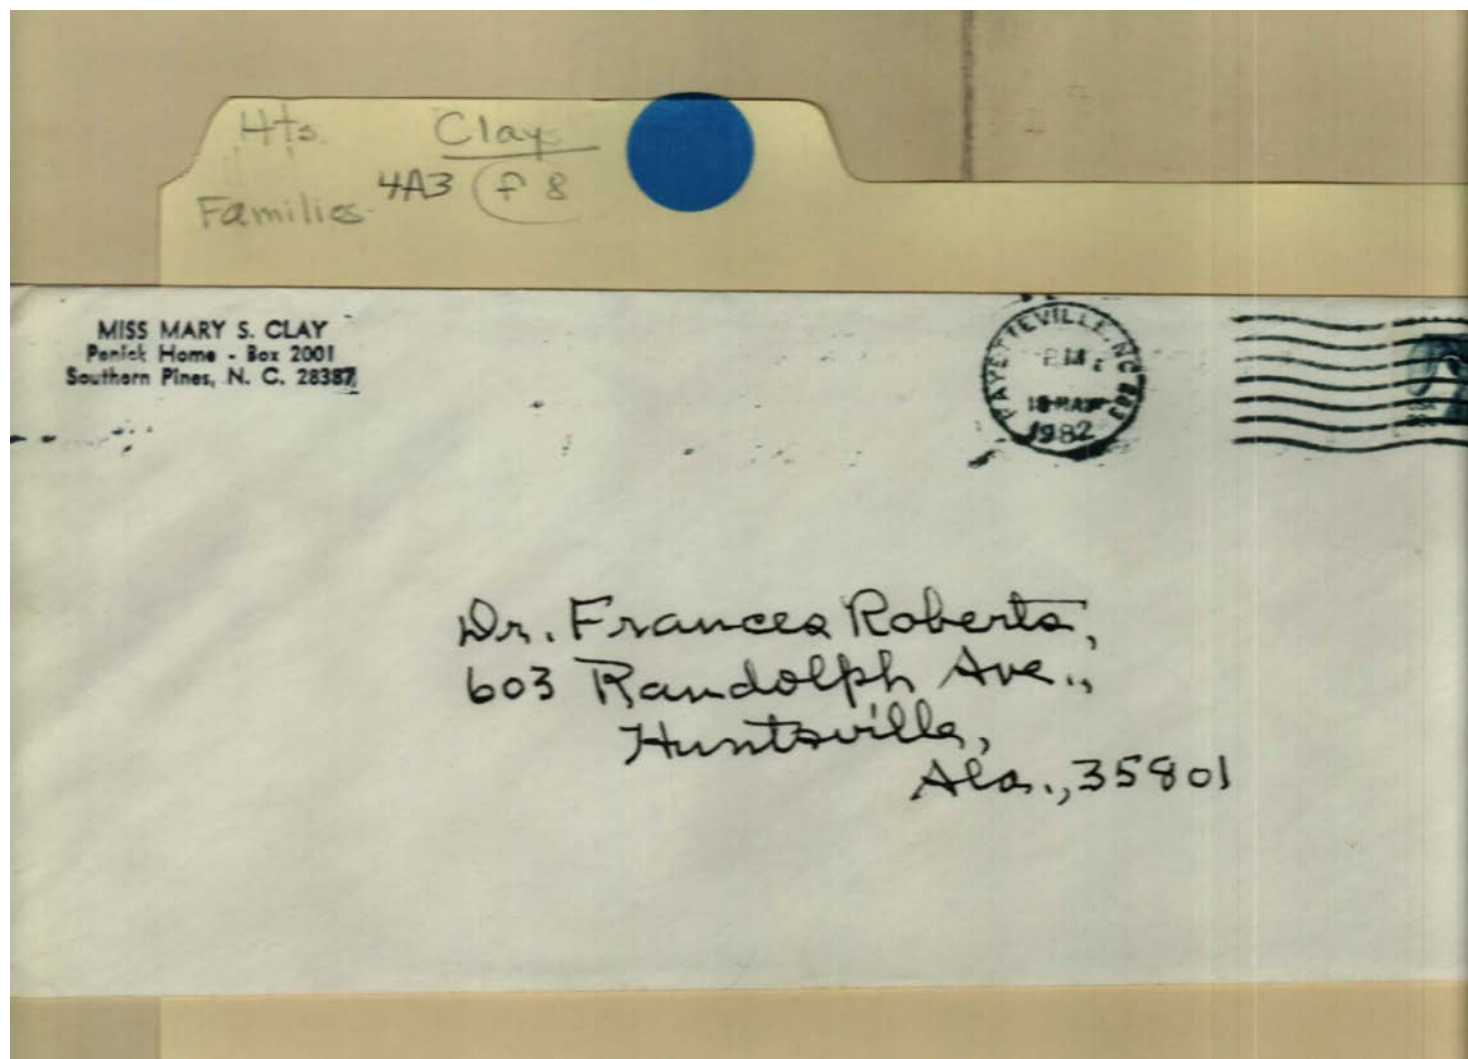 Hts. Clay
4A3 f 8
Families
MISS MARY S. CLAY
Penick Home - Box 2001
Southern Pines, N. C. 28387
FAYETTEVILLE, NC 283
PM
18 MAY
1982
Dr. Frances Roberts,
603 Randolph Ave.,
Huntsville,
Ala., 35801